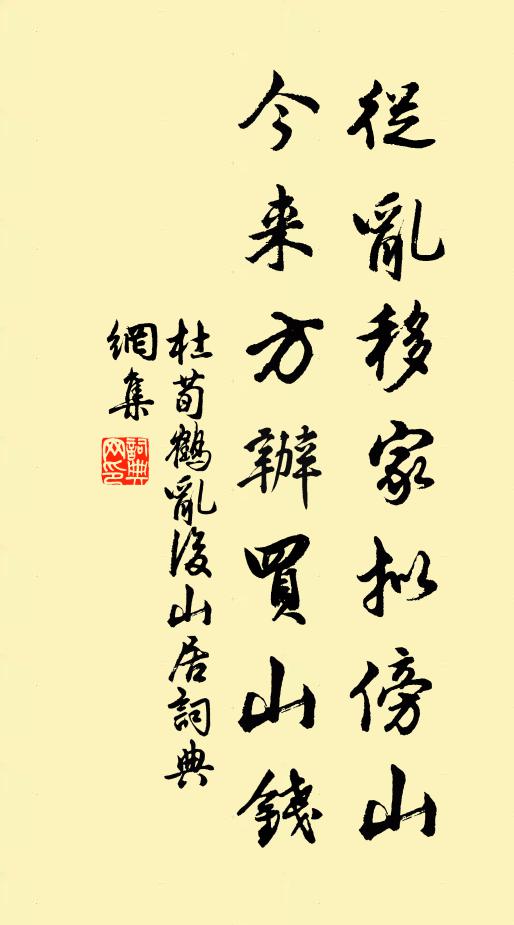 從亂移家擬傍山
今来方辦買山錢
杜荀鶴亂後山居詞典
網集
詞典
网印